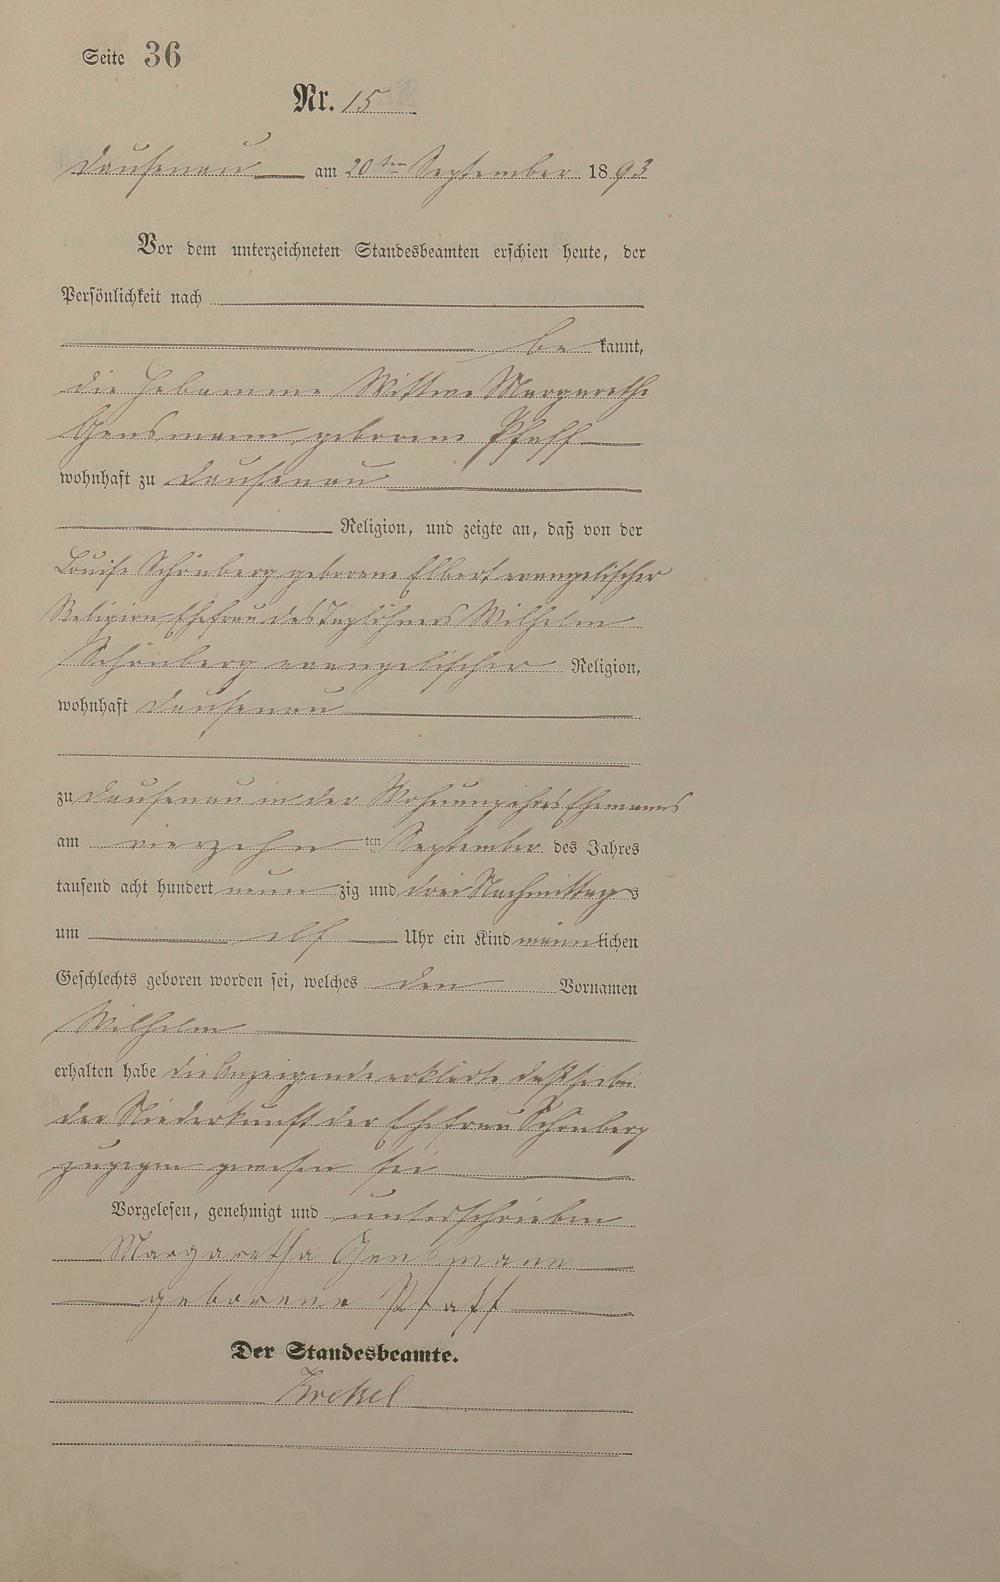 Seite 36
Nr. 15
Dausenau am 20ten September 1893
Vor dem unterzeichneten Standesbeamten erschien heute, der
Persönlichkeit nach
be kannt,
die Hebamme Wittwe Margarethe
Gensmann, geborene Pfaff
wohnhaft zu Dausenau
Religion, und zeigte an, daß von der
Louise Schönberg geborene Elbert evangelischer
Religion, Ehefrau des Taglöhners Wilhelm
Schönberg evangelischer Religion,
wohnhaft Dausenau
zu Dausenau in der Wohnung ihres Ehemanns
am vierzehn ten September des Jahres
tausend acht hundert neun zig und drei Nachmittags
um elf Uhr ein Kind männlichen
Geschlechts geboren worden sei, welches den Vornamen
Wilhelm
erhalten habe die Anzeigende erklärte, daß sie bei
der Niederkunft der Ehefrau Schönberg
zugegen gewesen sei
Vorgelesen, genehmigt und unterschrieben
Margaretha Gensmann
geborene Pfaff
Der Standesbeamte.
Krekel